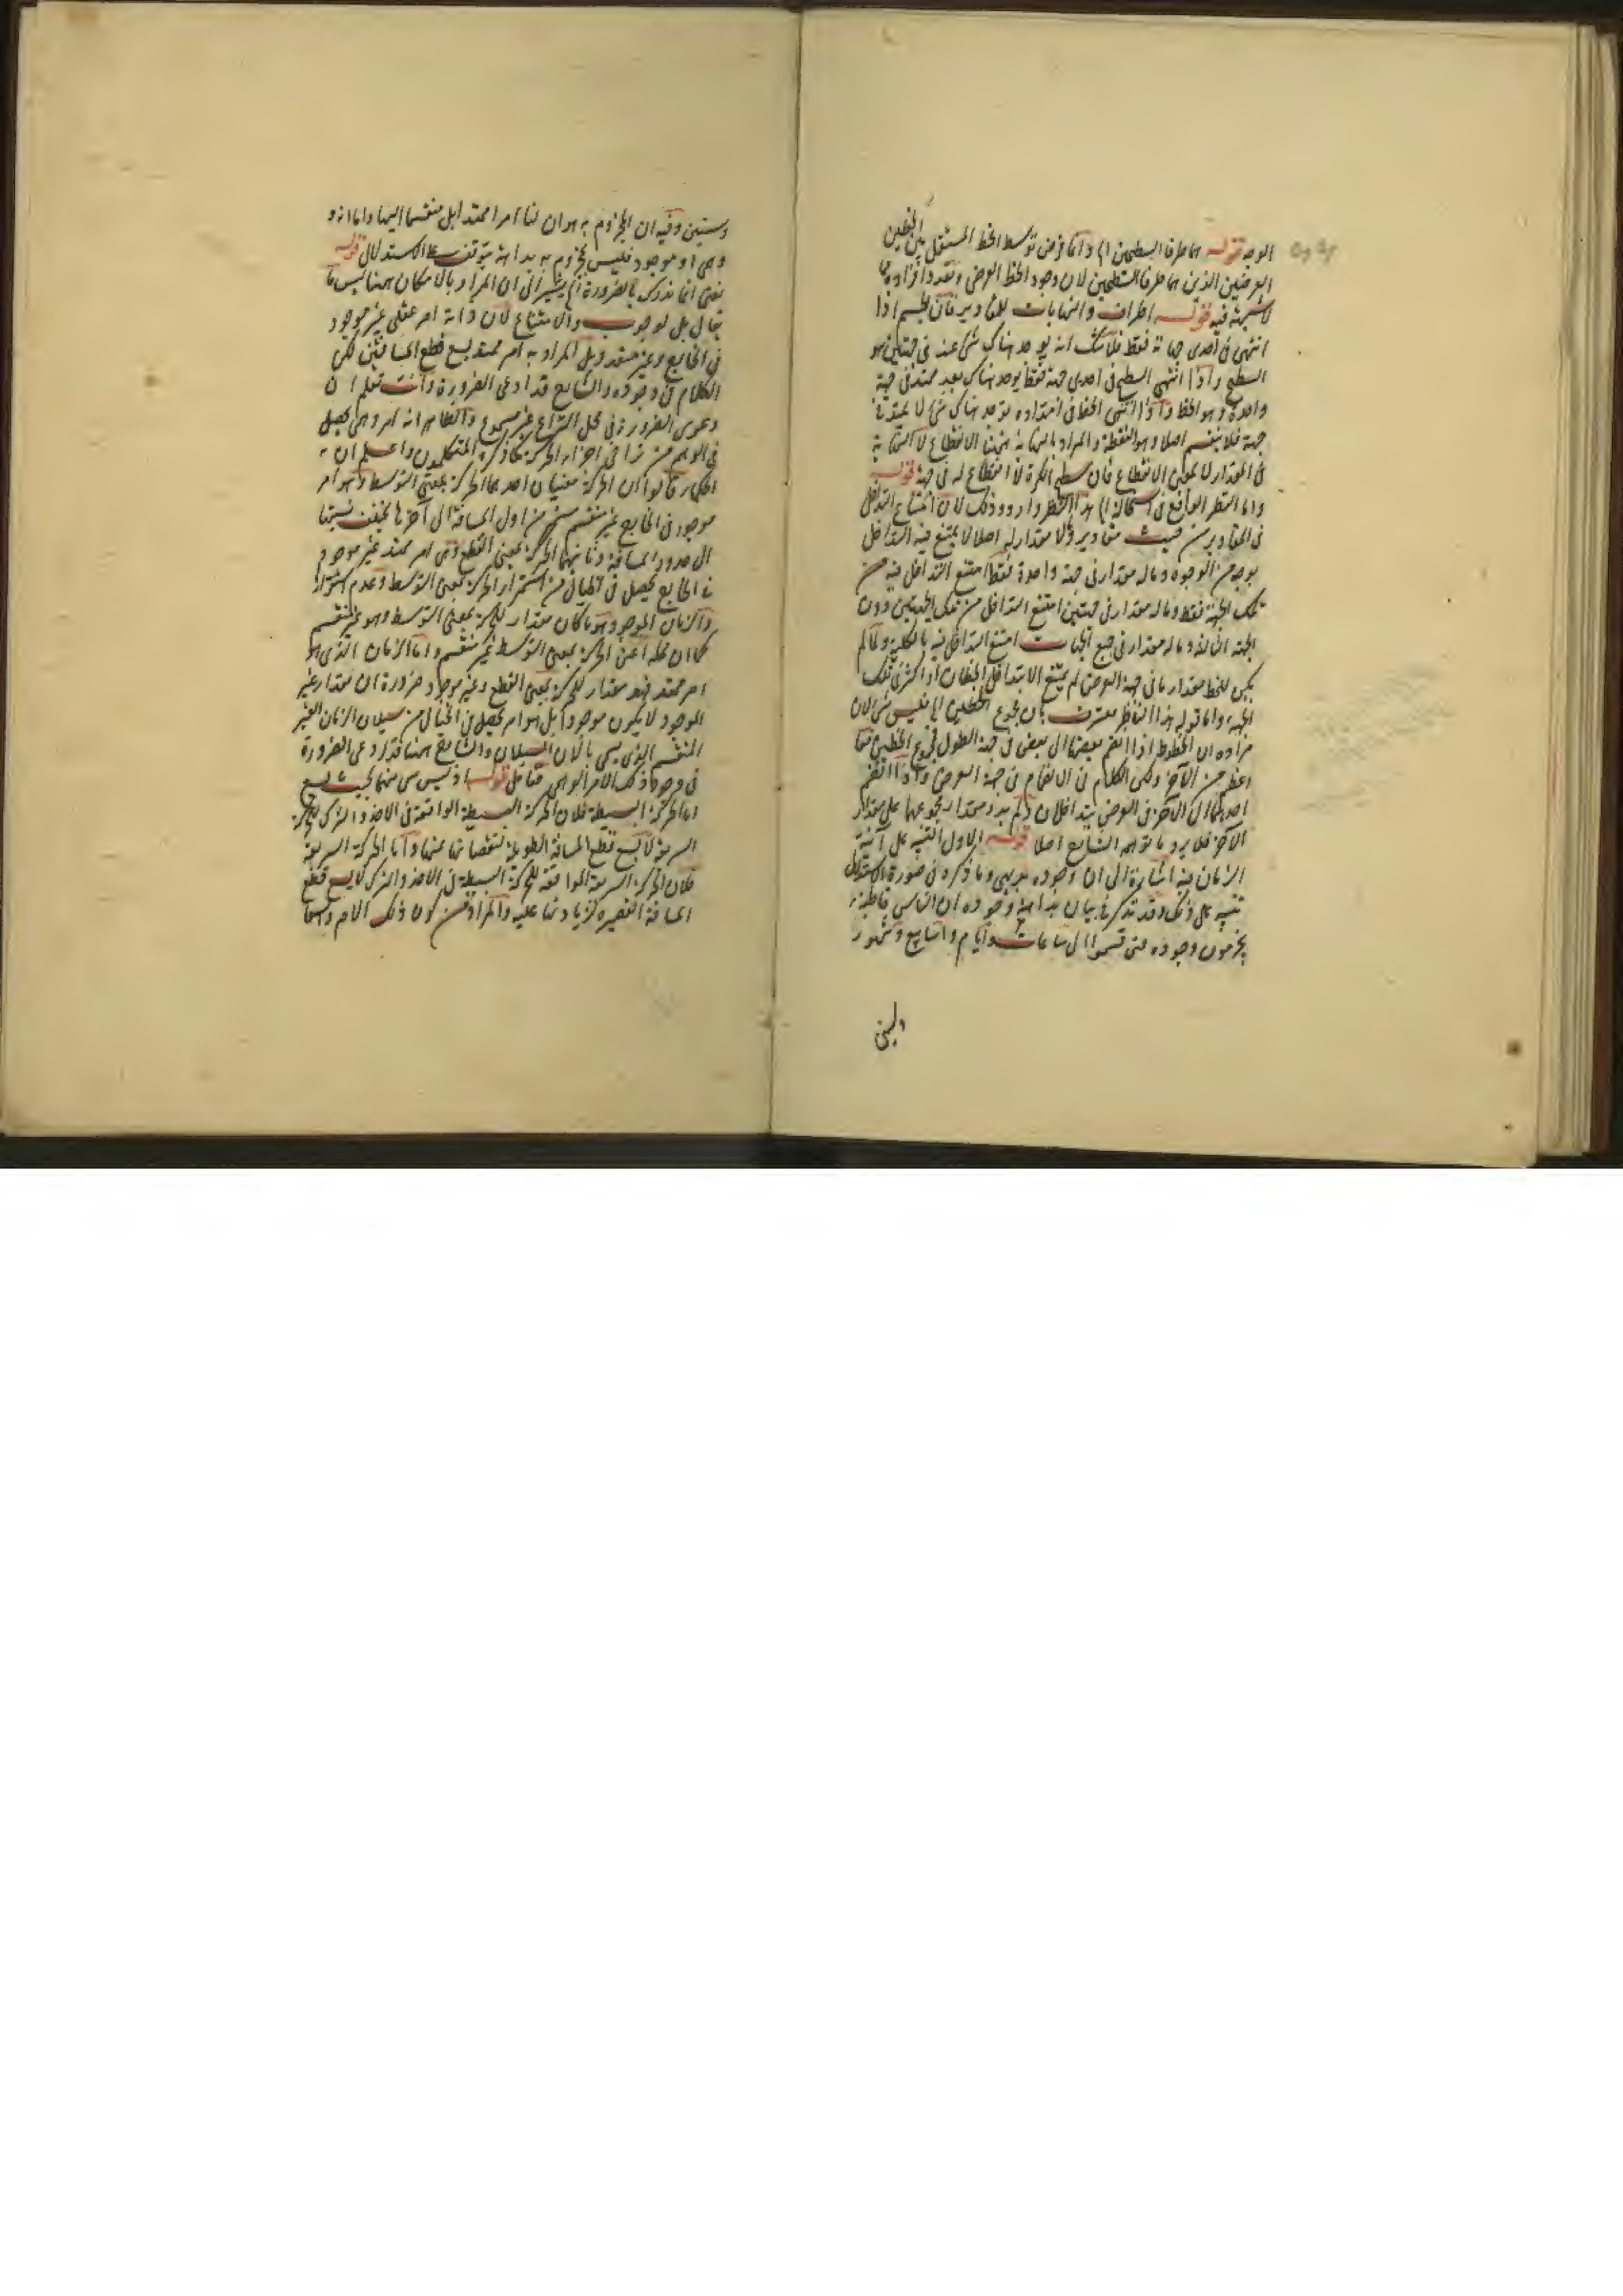 الوجه قوله هما طرفا السطحين اه وانما فرض توسط الخط المستقل بين الخطين
العرضيين الذين هما طرفا السطحين لان وجود الخط العرضي وتعدد افراده مما
لا شبهة فيه قوله اطراف والنهايات للمقادير فان الجسم اذا
انتهى في احدى جهاته فقط فلا شك انه يوجد هناك شئ ممتد في جهتين هو
السطح واذا انتهى السطح في احدى جهة فقط يوجد هناك بعد ممتد في جهة
واحدة وهو الخط واذا انتهى الخط في امتداده يوجد هناك شئ لا يمتد في
جهة فلا ينقسم اصلا وهو النقطة والمراد بالنهاية ههنا الانقطاع لا النهاية
في المقدار لا بمعنى الانقطاع فان سطح الكرة لا انقطاع له في جهة قوله
واما النظر الواقع في استحالة اه هذا النظر وارد وذلك لان امتناع التداخل
في المقادير من حيث مقادير ولا مقدار له اصلا لا يمتنع فيه التداخل
بوجه من الوجوه وماله مقدار في جهة واحدة فقط امتنع التداخل فيه من
تلك الجهة فقط وماله مقدار في جهتين امتنع التداخل من تلك الجهتين دون
الجهة الثالثة وماله مقدار في جميع الجهات امتنع التداخل فيه بالكلية ولما لم
يكن للخط مقدار ما في جهة العرض لم يمتنع الا بتداخل الخطان او اكثر في تلك
الجهة واما قوله هذا الناظر معترف بان مجموع الخطين اه فليس شئ لان
مراده ان الخطوط اذا انضم بعضها الى بعض في جهة الطول فمجموع الخطين منها
اعظم من الآخر ولكن الكلام في الانضمام في جهة العرض واذا انضم
احدهما الى الآخر في العرض يتداخلان ولم يزد مقدار مجموعهما على مقدار
الآخر فلا يرد ما توهم الشارح اصلا قوله الاول التنبيه على آنية
الزمان فيه اشارة الى ان وجوده بديهي وما ذكره في صورة الاستدلال
تنبيه على ذلك وقد تذكر في بيان بداهة وجوده ان الناس قاطبة
يجزمون وجوده حتى قسموا الى ساعات وايام واسابيع وشهور
وسنين
وسنين وفيه ان المجزوم به هو ان لنا امرا ممتدا بل منقسما اليها واما انه
وهمى او موجود فليس بمجزوم به بداهة بتوقف على الاستدلال قوله
يعنى انما ندرك بالضرورة اه يشير الى ان المراد بالامكان ههنا ليس ما
يقابل الوجوب والامتناع لان ذاته امر عقلى غير موجود
في الخارج وغير متقدر بل المراد به امر ممتد يسع قطع المسافتين لكن
الكلام في وجوده والشارح قد ادعى الضرورة وانت تعلم ان
دعوى الضرورة في محل النزاع غير مسموع والظاهر انه امر وهمى يحصل
في الوهم من تراخى اجزاء الحركة كما ذكره المتكلمون واعلم ان
الحكماء قالوا ان الحركة معنيان احدهما الحركة بمعنى التوسط وهو امر
موجود في الخارج غير منقسم مستمر من اول المسافة الى آخرها يختلف نسبتها
الى حدود المسافة وثانيهما الحركة بمعنى القطع وهى امر ممتد غير موجود
في الخارج يحصل في الخيال من استمرار الحركة بمعنى التوسط وعدم استقرارها
والزمان الموجود هو ما كان مقدار للحركة بمعنى التوسط وهو غير منقسم
كما ان محله اعنى الحركة بمعنى التوسط غير منقسم واما الزمان الذى هو
امر ممتد فهو مقدار للحركة بمعنى القطع وغير موجود ضرورة ان مقدار غير
الموجود لا يكون موجودا بل هو امر يحصل في الخيال من سيلان الزمان الغير
المنقسم الذى يسمى بالآن السيلان والشارح ههنا قد ادعى الضرورة
في وجود ذلك الامر الوهمى فتأمل قوله اذ ليس شئ منهما بحيث يسع
اما الحركة البطيئة فلان الحركة البطيئة الواقعة في الاخذ والترك للحركة
السريعة لا يسع قطع المسافة الطويلة لنقصانها عنها واما الحركة السريعة
فلان الحركة السريعة الموافقة للحركة البطيئة في الاخذ والترك لا يسع قطع
المسافة القصيرة لزيادتها عليه والمراد من كون ذلك الامر واسعا